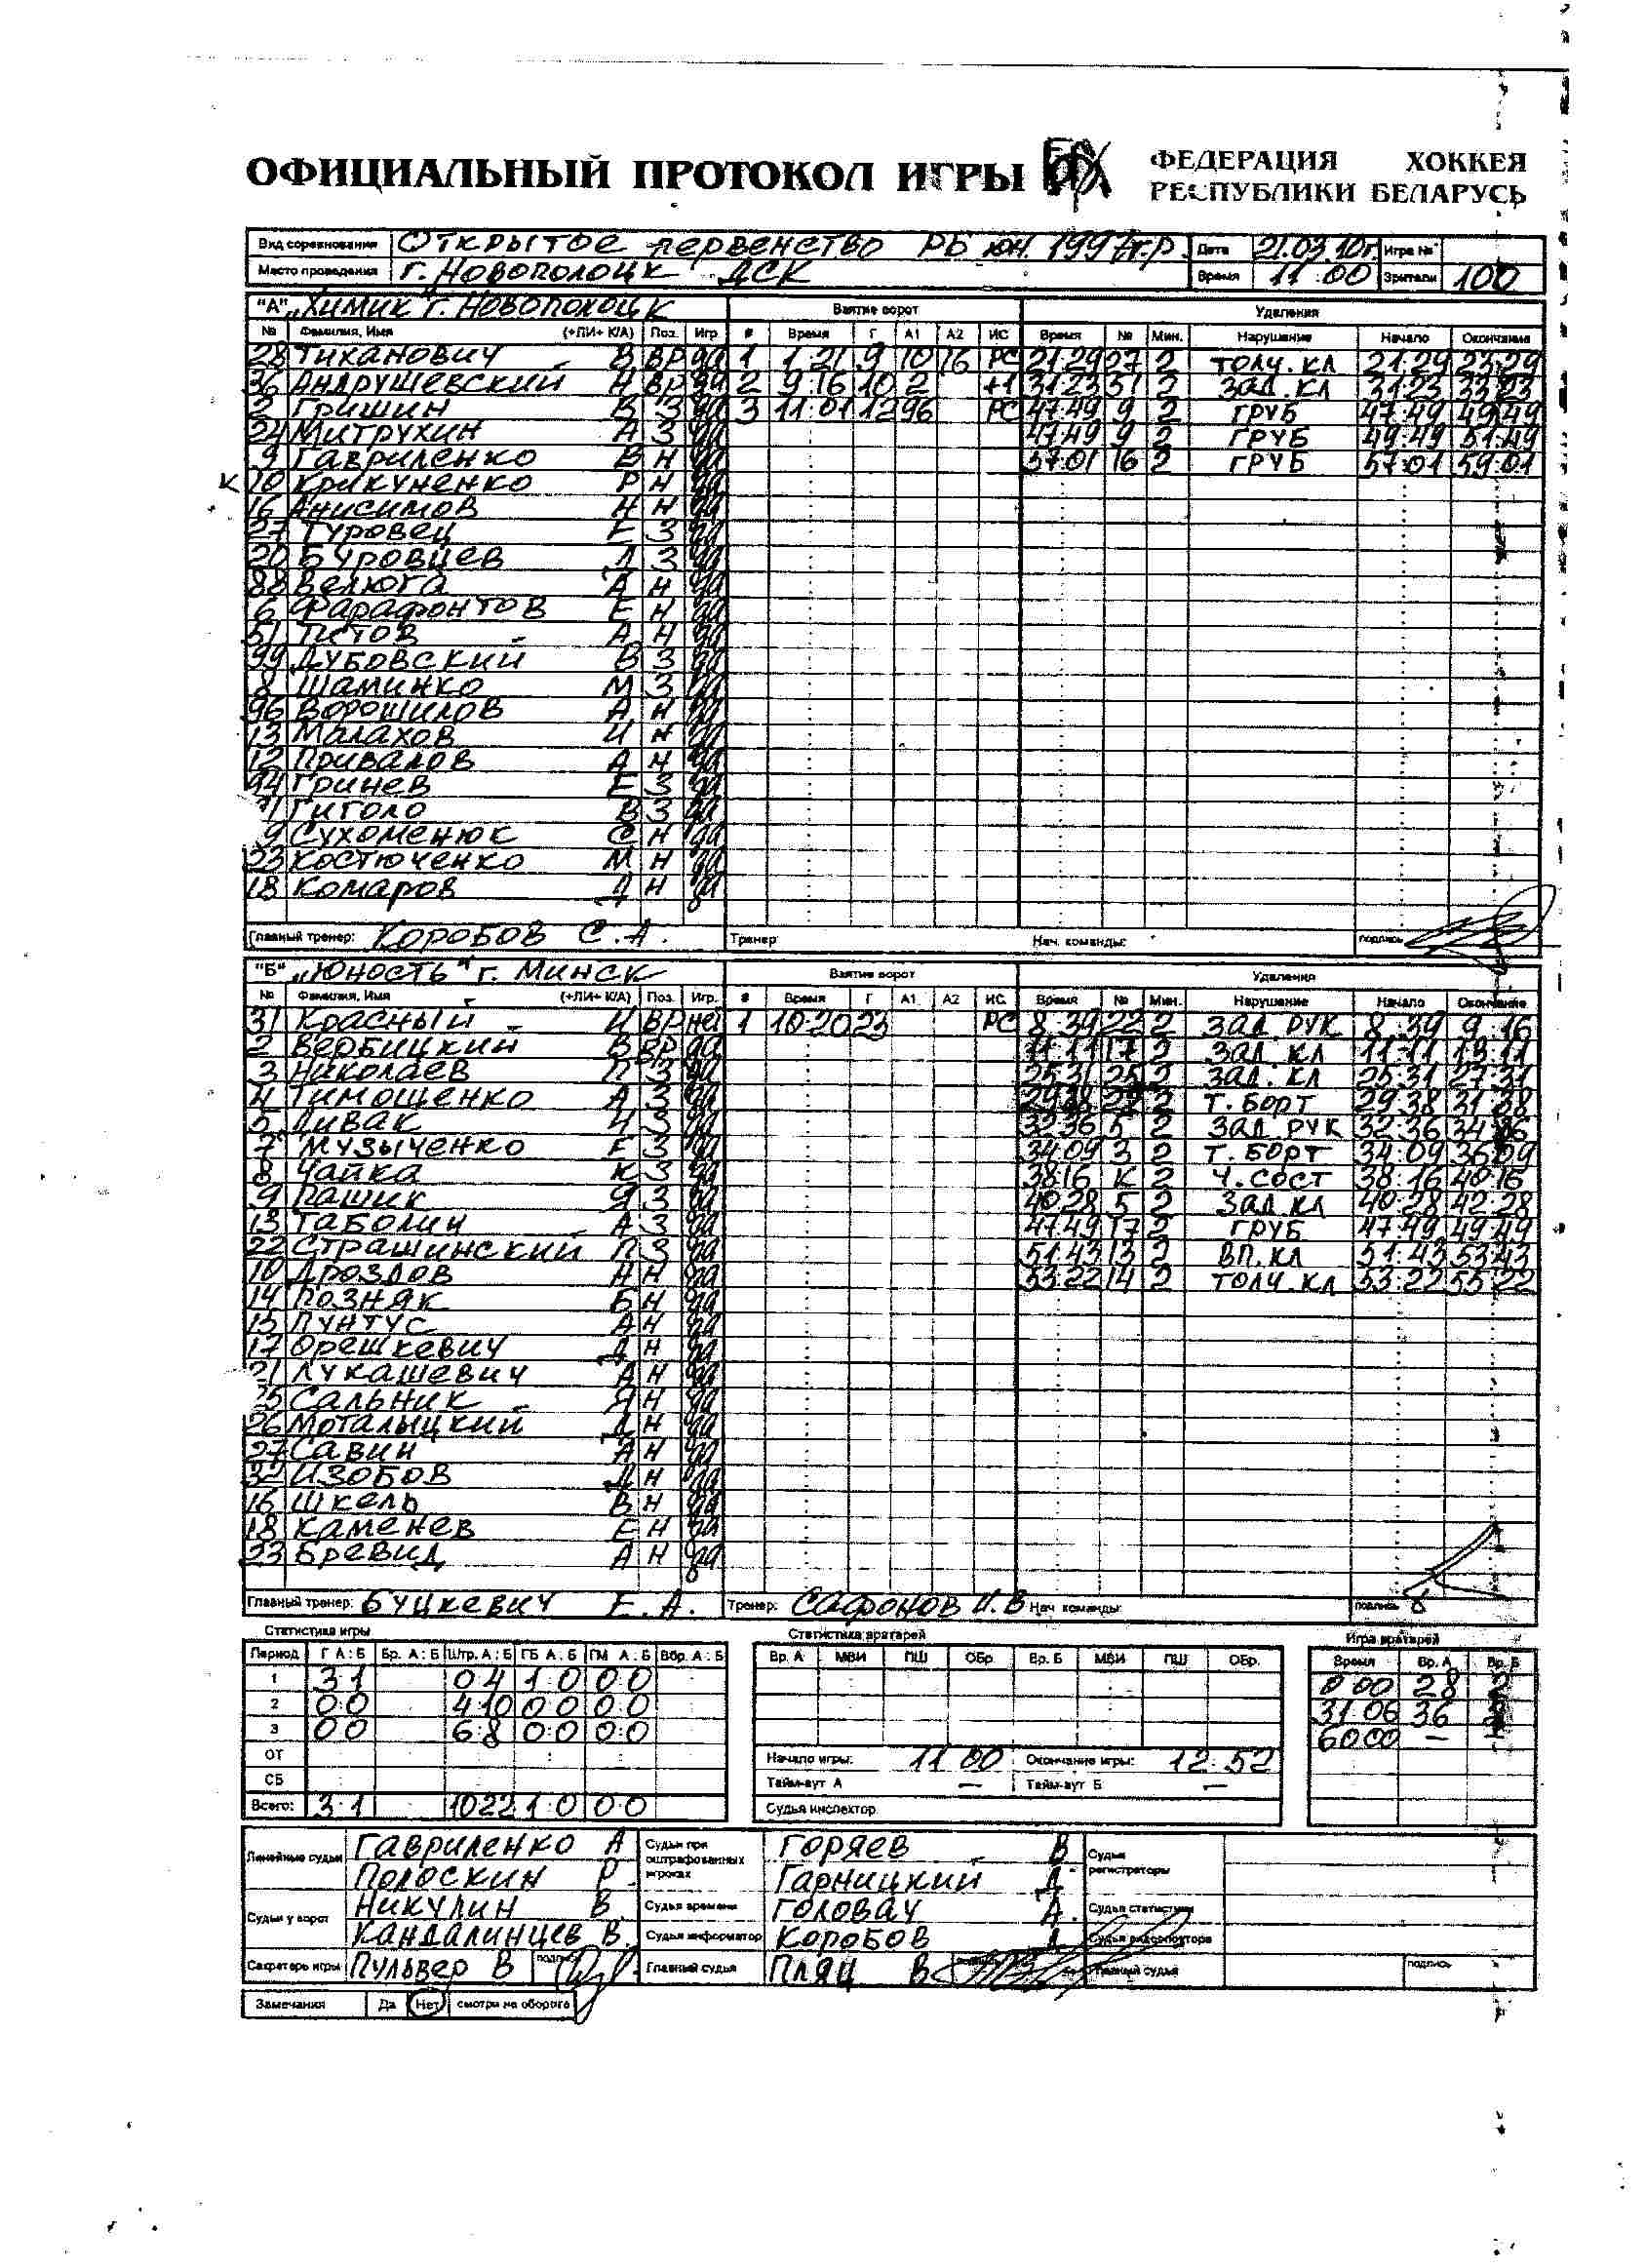 ОФИЦИАЛЬНЫЙ ПРОТОКОЛ ИГРЫ
ФЕДЕРАЦИЯ ХОККЕЯ
РЕСПУБЛИКИ БЕЛАРУСЬ
Вид соревнования Открытое первенство РБ юн. 1997г.р. Дата 21.03.10г. Игра №
Место проведения г. Новополоцк ДСК Время 11:00 Зрители 100
"А" „Химик" г. Новополоцк Взятие ворот Удаления
№ Фамилия, Имя (+ЛИ+ К/А) Поз. Игр # Время Г А1 А2 ИС Время № Мин. Нарушение Начало Окончание
28 Тиханович В ВР да 1 1:21 9 10 16 РС 21:29 27 2 толч.кл 21:29 23:29
36 Андрушевский Н ВР да 2 9:16 10 2 +1 31:23 51 2 зад.кл 31:23 33:23
2 Гришин В З да 3 11:01 12 96 РС 47:49 9 2 груб 47:49 49:49
24 Митрухин А З да 47:49 9 2 груб 49:49 51:49
9 Гавриленко В Н да 57:01 16 2 груб 57:01 59:01
К 10 Крикуненко Р Н да
16 Анисимов Н Н да
27 Туровец Е З да
20 Буровцев Д З да
88 Велюга А Н да
6 Фарафонтов Е Н да
51 Петов А Н да
99 Дубовский В З да
8 Шаминко М З да
96 Ворошилов А Н да
13 Малахов И Н да
12 Привалов А Н да
44 Гринев Е З да
Гиголо В З да
9 Сухоменюк С Н да
23 Костюченко М Н да
18 Комаров Д Н да
Главный тренер: Коробов С.А. Тренер: Нач. команды: подпись
"Б" „Юность" г. Минск Взятие ворот Удаления
№ Фамилия, Имя (+ЛИ+ К/А) Поз. Игр. # Время Г А1 А2 ИС Время № Мин. Нарушение Начало Окончание
31 Красный И ВР нет 1 10:20 23 РС 8:39 22 2 зад.рук 8:39 9:16
2 Вербицкий В ВР да 11:11 17 2 зад.кл 11:11 13:11
3 Николаев П З да 25:31 25 2 зад.кл 25:31 27:31
4 Тимошенко А З да 29:38 22 2 т.борт 29:38 31:38
5 Дивак И З да 32:36 5 2 зад рук 32:36 34:36
7 Музыченко Е З да 34:09 3 2 т.борт 34:09 36:09
8 Чайка К З да 38:16 К 2 ч.сост 38:16 40:16
9 Пашик Я З да 40:28 5 2 зад.кл 40:28 42:28
13 Таболич А З да 47:49 17 2 груб 47:49 49:49
22 Страшинский П З да 51:43 13 2 вп.кл 51:43 53:43
10 Дроздов Н Н да 53:22 14 2 толч.кл 53:22 55:22
14 Позняк Б Н да
15 Пунтус А Н да
17 Орешкевич Д Н да
21 Лукашевич А Н да
25 Сальник Я Н да
26 Моталыцкий Д Н да
27 Савин А Н да
32 Изобов Д Н да
16 Шкель В Н да
18 Каменев Е Н да
23 Бревид А Н да
Главный тренер: Буцкевич Е.А. Тренер: Сафонов И.В Нач. команды: подпись
Статистика игры Статистика вратарей Игра вратарей
Период Г А:Б Бр. А:Б Штр. А:Б ГБ А:Б ГМ А:Б Вбр. А:Б Вр. А МВИ ПШ ОБр. Вр. Б МВИ ПШ ОБр. Время Вр. А Вр. Б
1 3:1 0:4 1:0 0:0 0:00 28 2
2 0:0 4:10 0:0 0:0 31:06 36 2
3 0:0 6:8 0:0 0:0 60:00 –
ОТ Начало игры: 11:00 Окончание игры: 12:52
СБ Тайм-аут А – Тайм-аут Б –
Всего: 3:1 10:22 1:0 0:0 Судья инспектор
Линейные судьи Гавриленко А Судьи при оштрафованных игроках Горяев В Судьи регистраторы
Полоскин Р. Гарницкий Д
Судьи у ворот Никулин В. Судья времени Головач А. Судья статистики
Кандалинцев В. Судья информатор Коробов Судья видеоповтора
Секретарь игры Пульвер В подпись Главный судья Пляц В Главный судья подпись
Замечания Да Нет смотри на обороте